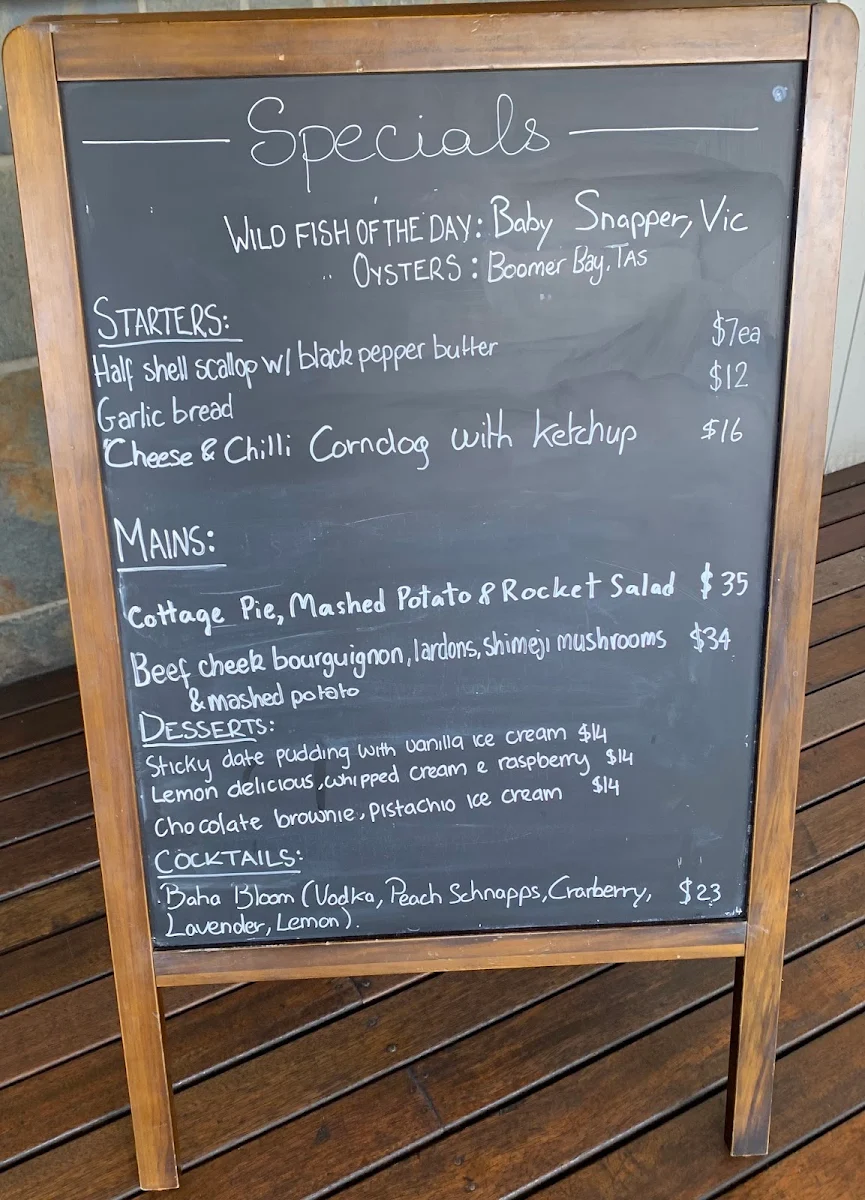 Specials
WILD FISH OF THE DAY: Baby Snapper, Vic
OYSTERS: Boomer Bay, TAS
STARTERS:
Half shell scallop w/ black pepper butter $7ea
Garlic bread $12
Cheese & Chilli Corndog with ketchup $16
MAINS:
Cottage Pie, Mashed Potato & Rocket Salad $35
Beef cheek bourguignon, lardons, shimeji mushrooms $34
& mashed potato
DESSERTS:
Sticky date pudding with vanilla ice cream $14
Lemon delicious, whipped cream & raspberry $14
Chocolate brownie, pistachio ice cream $14
COCKTAILS:
Baha Bloom (Vodka, Peach Schnapps, Cranberry, $23
Lavender, Lemon).